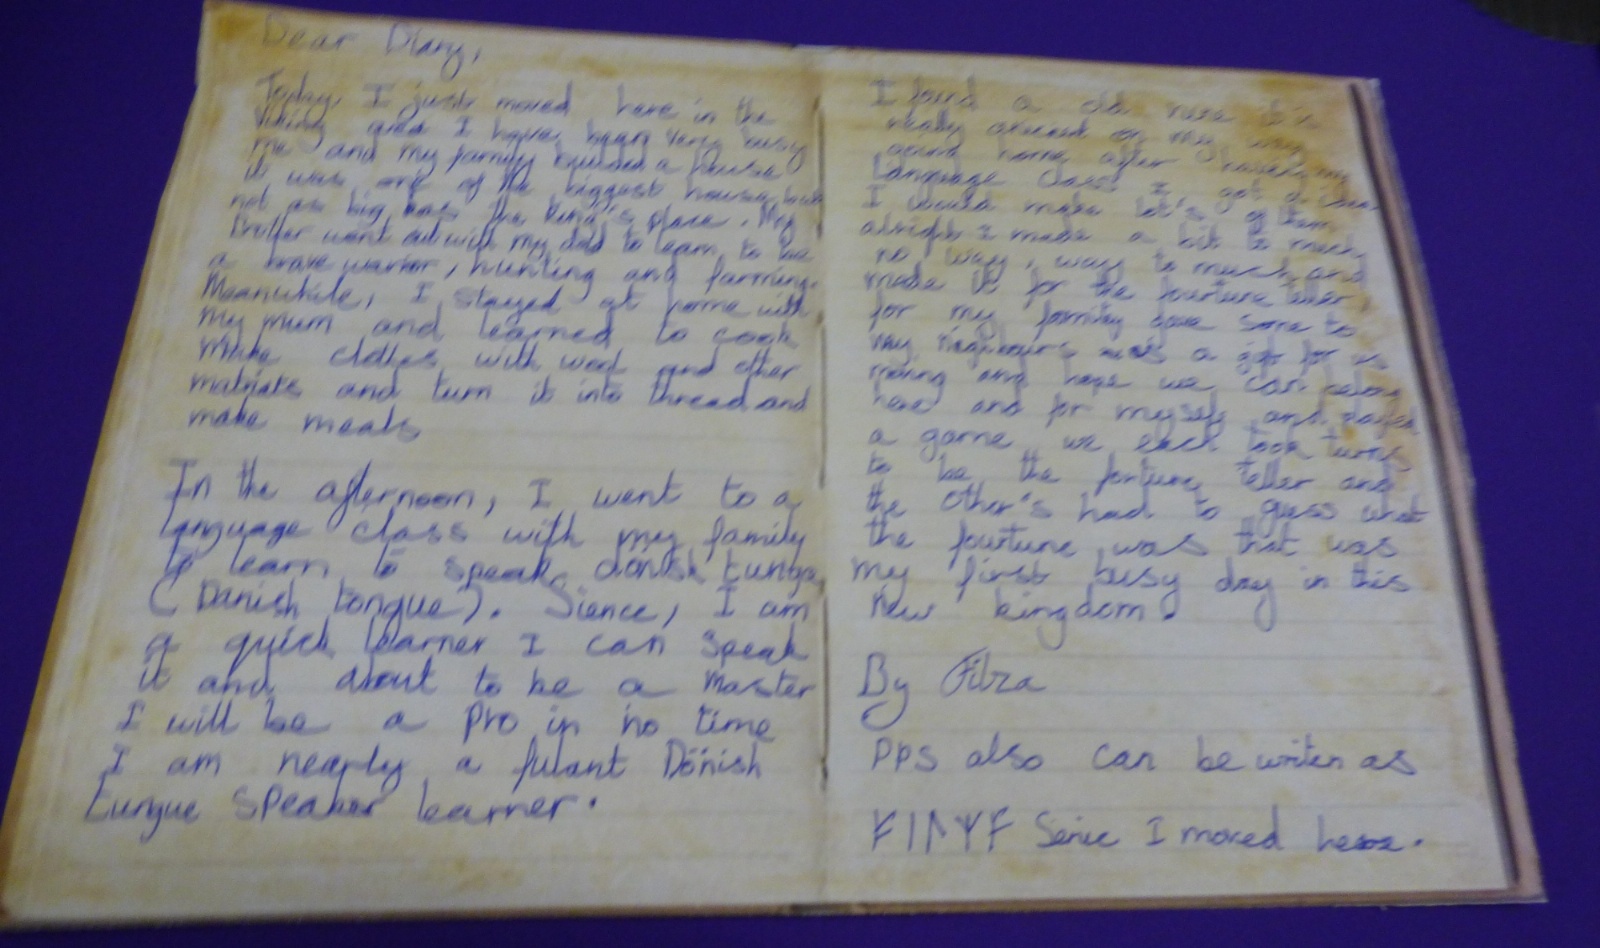 Dear Diary,
Today, I just moved here in the
Viking area I have been very busy
me and my family builded a house
it was one of the biggest house, but
not as big as the king's place. My
Brother went out with my dad to learn to be
a brave warrior, hunting and farming.
Meanwhile, I stayed at home with
my mum and learned to cook
make clothes with wool and other
and turn it into thread and
make meals
In the afternoon, I went to a
language class with my family
to learn to speak dönsk tunga
(Danish tongue). Sience, I am
a quick learner I can speak
it and about to be a master
I will be a pro in no time
I am nearly a fulant Dönish
tungue speaker learner.
I found a old rune it's
really on my way
going home after my
Language class I got a idea
I would make lot's of them
alright I made a bit to much
no way, way to much and
made it for the fourtune teller,
for my family gave some to
my neighbours as a gift for us
moving and hope we can belong
here and for myself and played
a game we each took turns
to be the fortune teller and
the other's had to guess what
the fourtune was that was
my first busy day in this
new kingdom.
By
PPS also can be writen as
ᚠᛁᛚᛉᚠ Senic I moved here.